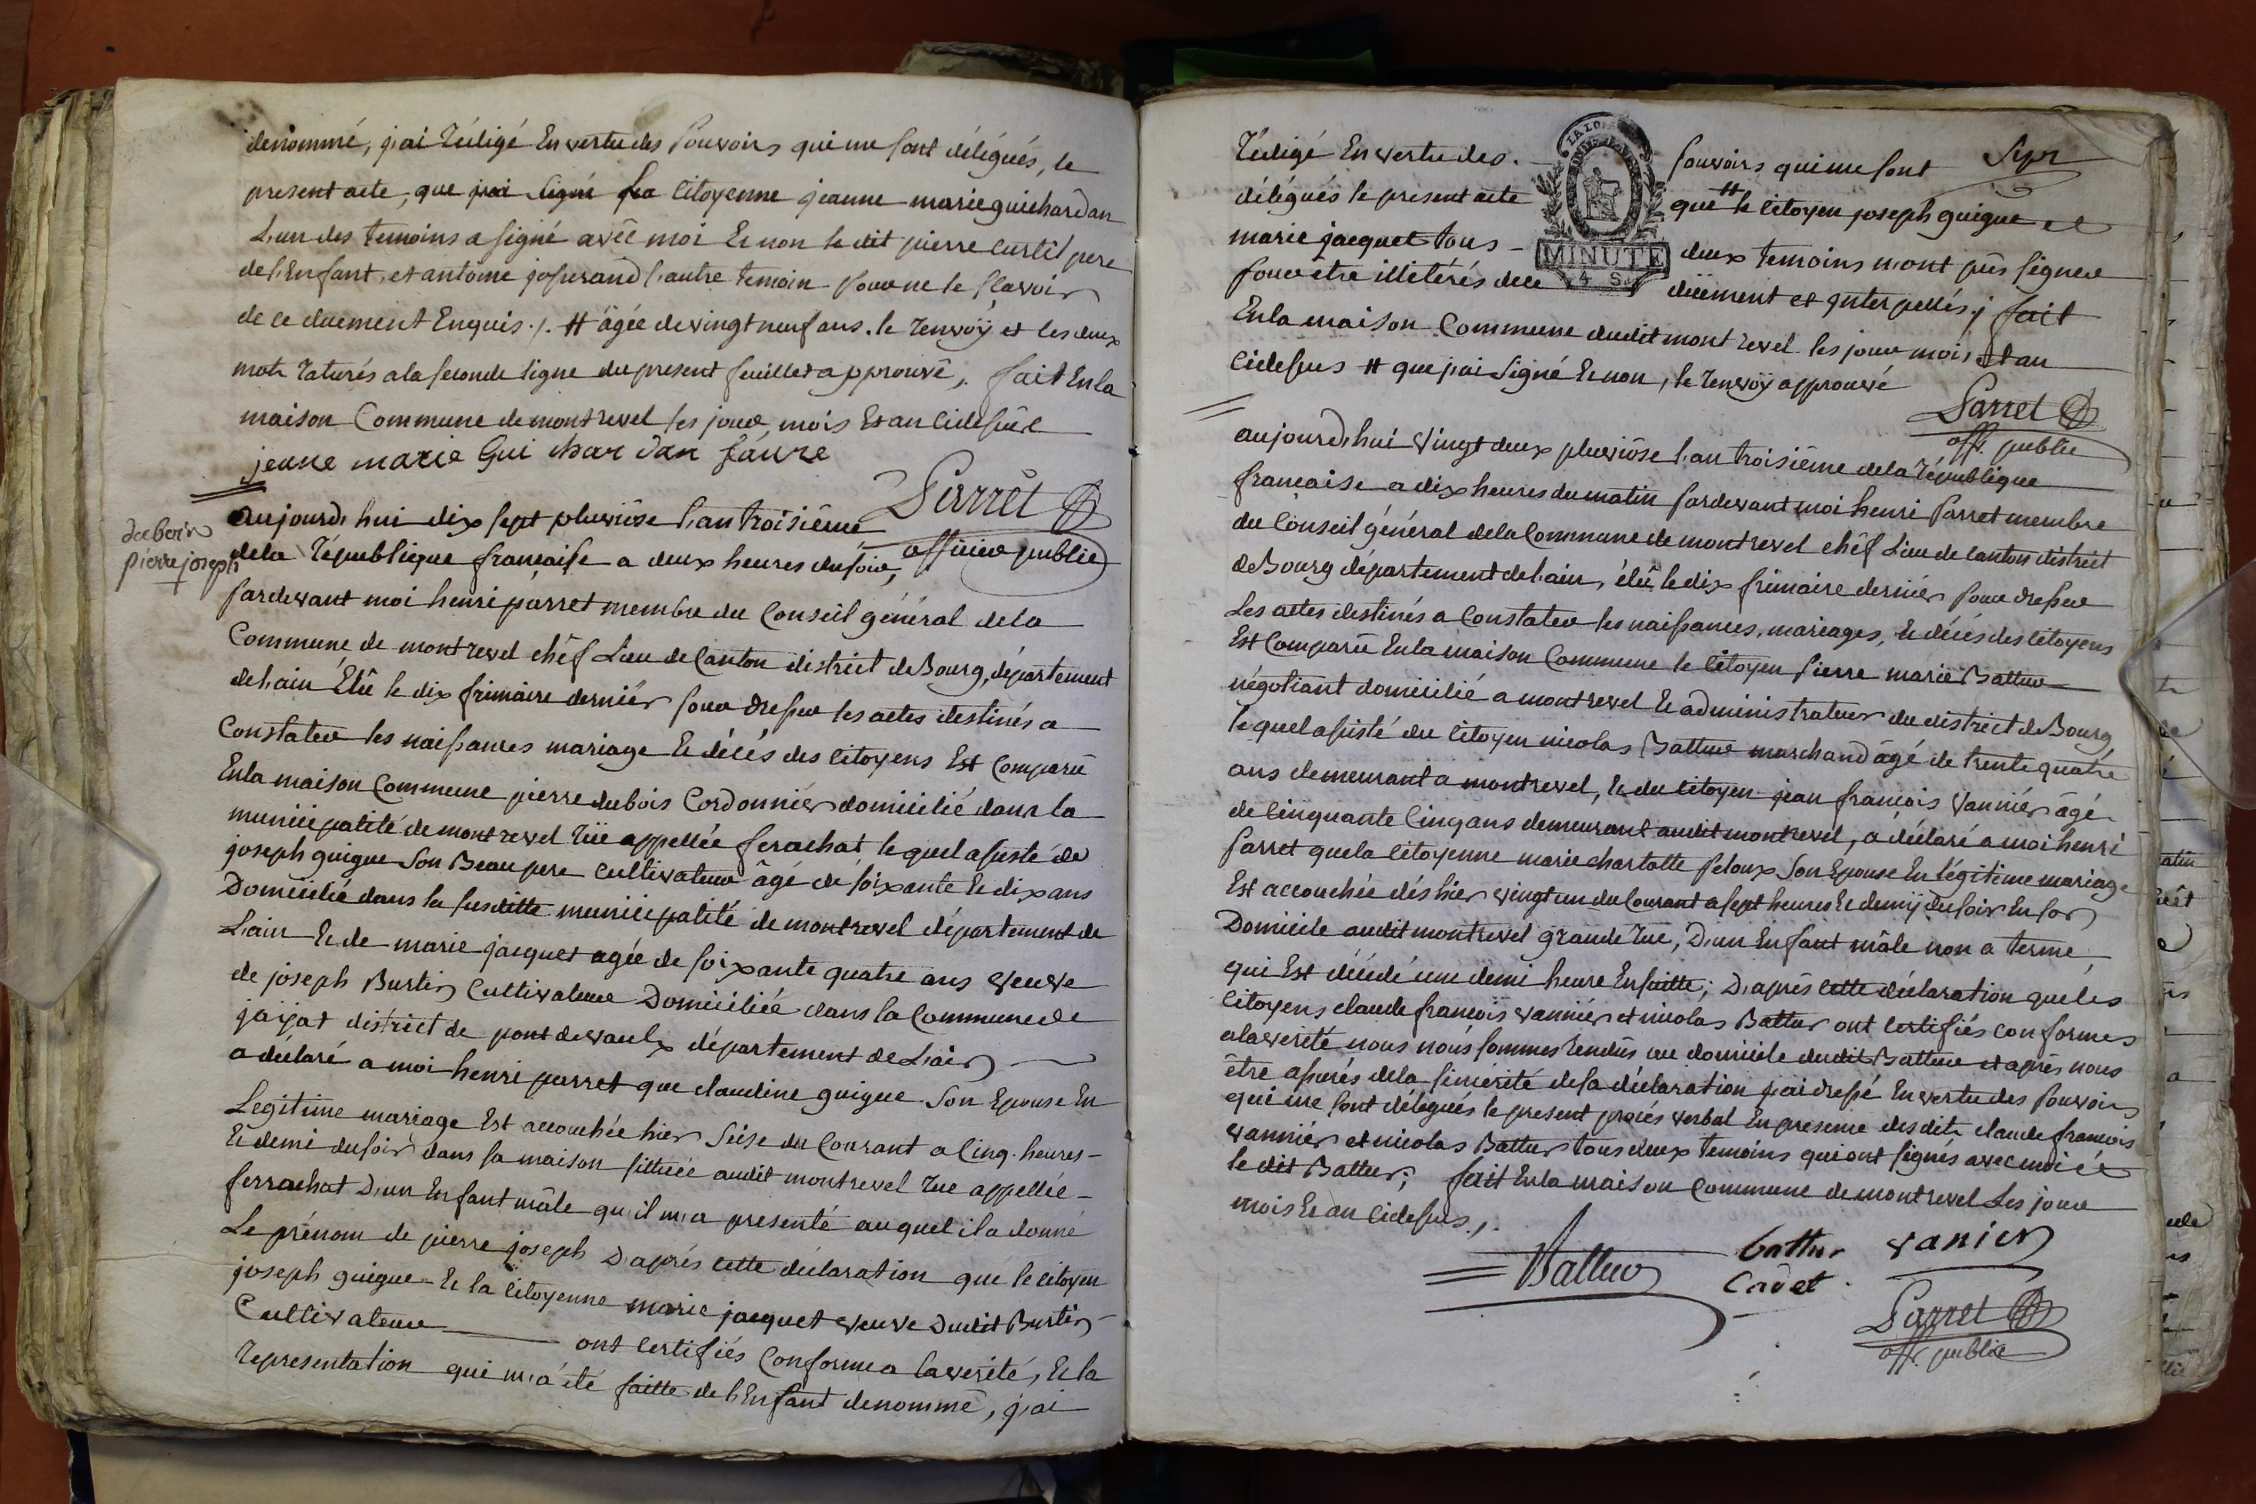 denommé, j,ai Rédigé En vertu des Pouvoirs qui me sont délégués, le
present acte, que j,ai signé La Citoyenne jeanne marie guichardan
L,un des temoins a signé avêc moi Et non le dit pierre Curtil pere
de l,Enfant, et antoine josserand l,autre temoin pour ne le sçavoir
de ce duement Enquis ./. # âgée de vingt neuf ans. le Renvoÿ et les deux
mots Raturés a la seconde ligne du present feuillet approuvé ,. fait En la
maison Commune de montrevel les jour, mois Et an Cidessus
jeane marie Gui char dan faure
Parrêt
officier public
dubois
pierre joseph
aujourd,hui dix sept pluviôse l,an troisiême
de la République française a deux heures du soir,
pardevant moi henri parret membre du Conseil général de la
Commune de montrevel chêf Lieu de Canton district de Bourg, département
de l,ain Élû le dix frimaire derniér pour dresser les actes destinés a
Constater les naissances mariage Et décés des Citoyens Est Comparû
En la maison Commune pierre dubois Cordonniér domicilié dans la
municipalité de montrevel Rüe appellée ferachat le quel assisté de
joseph guigue Son Beau pere Cultivateur âgé de soixante Et dix ans
Domicilié dans la susditte municipalité de montrevel département de
L,ain Et de marie jacquet agée de soixante quatre ans veuve
de joseph Burtin Cultivateur Domiciliée dans la Commune de
jaÿat district de pont de vaulx département de L,ain
a déclaré a moi henri parret que claudine guigue Son Epouse En
Legitime mariage Est accouchée hier Seise du Courant a Cinq heures
Et demi du soir dans sa maison sittuée audit montrevel Rue appellée
ferrachat D,un Enfant mâle qu,il m,a presenté auquel il a donné
Le prénom de pierre joseph D,aprés cette déclaration que le citoyen
joseph guigue Et la Citoyenne marie jacquet veuve Dudit Burtin
Cultivateur ont certifiés Conforme a la verité, Et la
Representation qui m,a été faitte de l,Enfant denommé, j,ai
Rédigé En vertu des pouvoirs qui me sont
délégués le present acte que # le Citoyen joseph guigue et
marie jacquet tous deux temoins n,ont pûs signer
pour etre illitérés de ce düement et ynterpellés ; fait
En la maison Commune dudit montrevel les jour mois Et an
Cidessus # que j,ai Signé Et non, le Renvoÿ approuvé
LA LOI
MINUTE
4 S.
Parret
off. public
aujourd,hui vingt deux pluviôse l,an troisiême de la République
française a dix heures du matin pardevant moi henri Parret membre
du Conseil général de la Commune de montrevel chêf Lieu de canton district
de Bourg département de l,ain, élû le dix frimaire derniér pour dresser
Les actes destinés a Constater les naissances, mariages, Et décés des citoyens
Est Comparû En la maison Commune le Citoyen Pierre marie Battur
négotiant domicilié a montrevel Et administrateur du district de Bourg
le quel assisté du Citoyen nicolas Battur marchand âgé de trente quatre
ans demeurant a montrevel, Et du Citoyen jean françois vanniér âgé
de Cinquante Cinq ans demeurant audit montrevel, a déclaré a moi henri
parret que la Citoyenne marie charlotte Peloux Son Epouse En légitime mariage
Est accouchée dés hier vingt un du Courant a sept heures Et demÿ du soir En son
Domicile audit montrevel grande Rue, D,un Enfant mâle non a terme,
qui Est décédé une demi heure Ensuitte ; D,aprés cette déclaration que les
Citoyens claude françois vanniér et nicolas Battur ont certifiés conformes
a la verité nous nous sommes Rendûs au domicile dudit Battur et aprés nous
être assurés de la sincérité de sa déclaration j,ai dressé En vertu des Pouvoirs
qui me sont délégués le present procés verbal En presence desdits claude françois
vanniér et nicolas Battur tous deux temoins qui ont signés avec moi et
le dit Battur ; fait En la maison Commune de montrevel Les jour
mois Et an Cidessus ./.
Battur battur vanier
Cadet
Parret
off. public